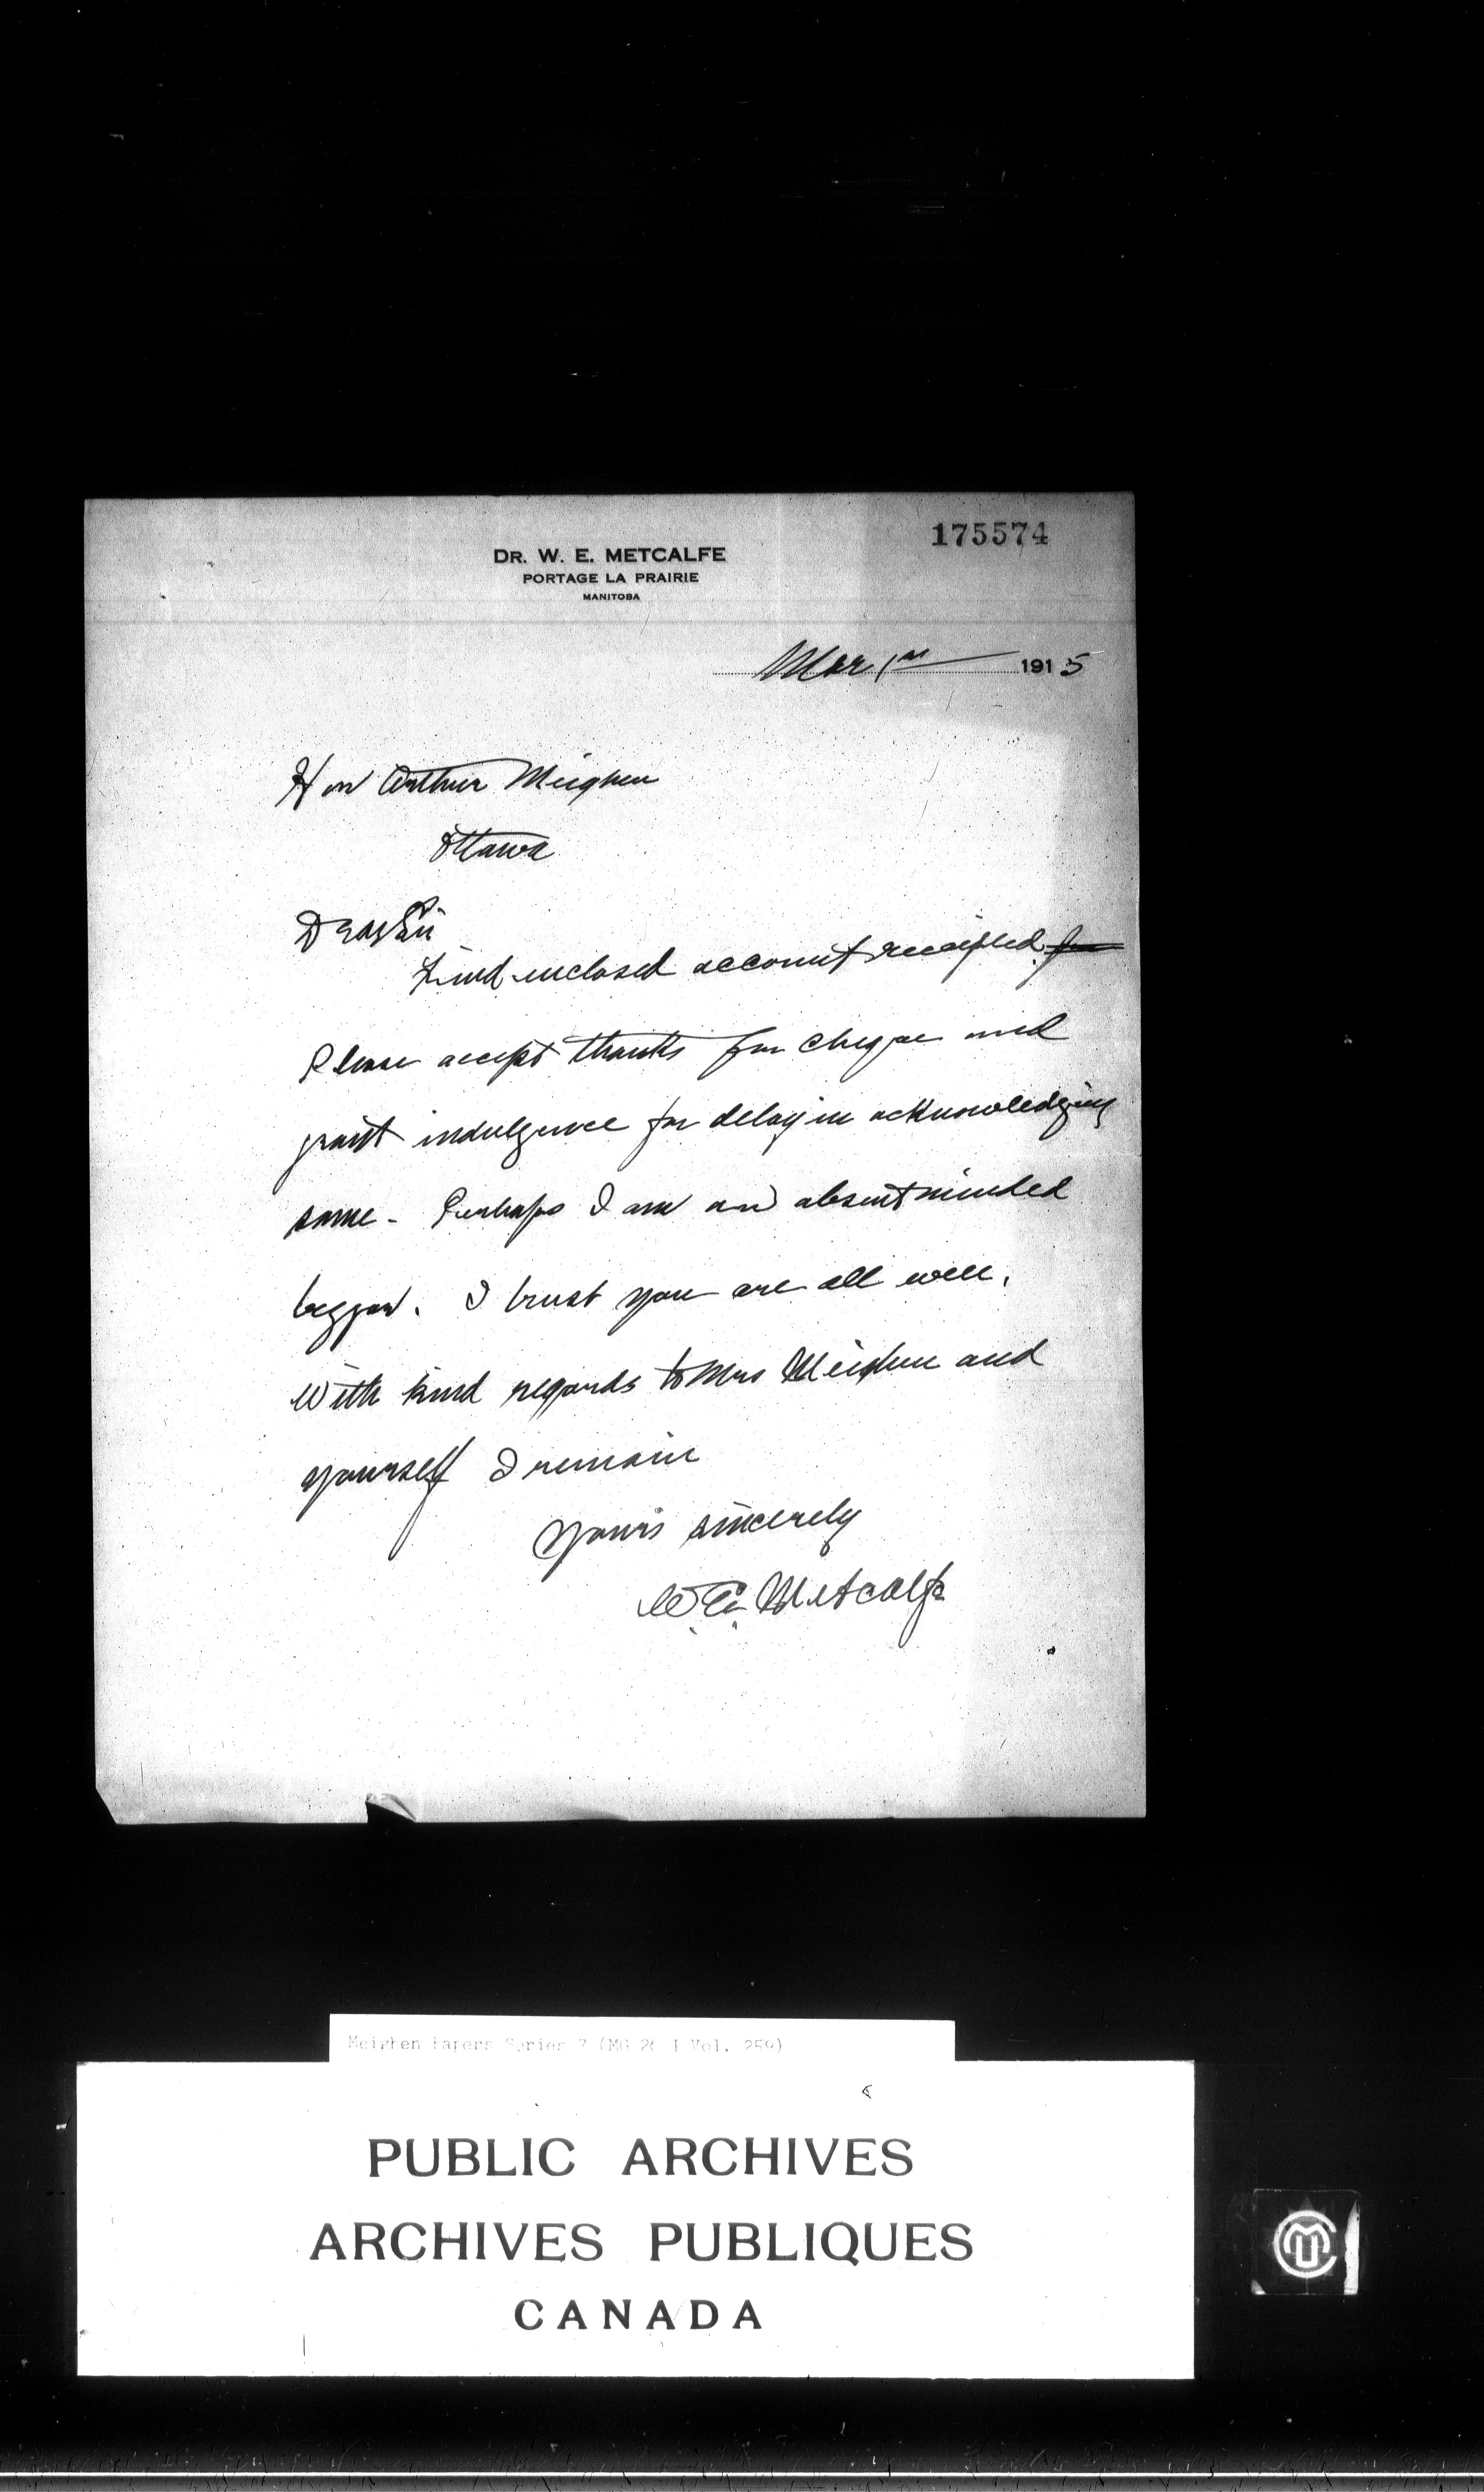 175574
DR. W. E. METCALFE
PORTAGE LA PRAIRIE
MANITOBA
Mar 1st 1915
Hon Arthur Meighen
Ottawa
Dear Sir
Find enclosed account receipted. for
Please accept thanks for cheque and
grant indulgence for delay in acknowledging
same - Perhaps I am an absentminded
beggar. I trust you are all well.
With kind regards to Mrs Meighen and
yourself I remain
Yours sincerely
W. E. Metcalfe
Meighen Papers Series 7 (MG 26 I Vol. 259)
PUBLIC ARCHIVES
ARCHIVES PUBLIQUES
CANADA